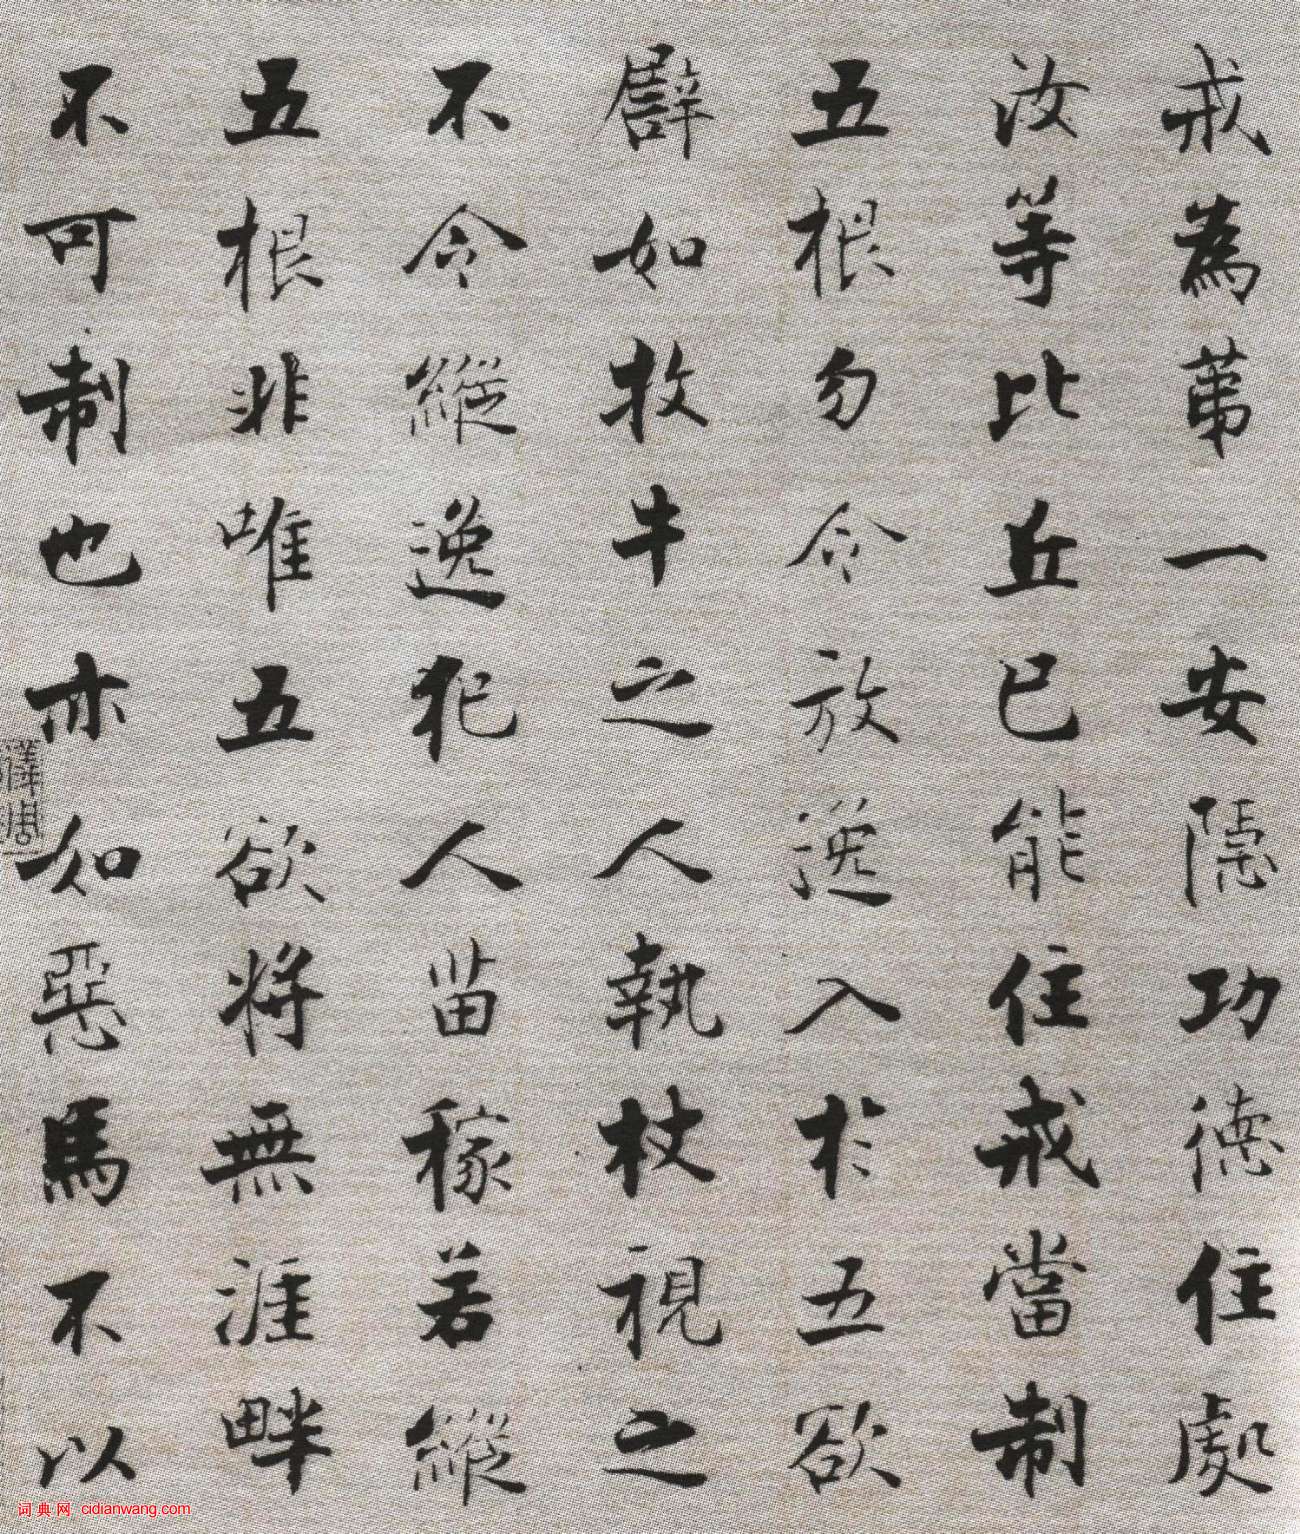 戒為苐一安隱功德住處
汝等比丘已能住戒當制
五根勿令放逸入於五欲
譬如牧牛之人執杖視之
不令縱逸犯人苗稼若縱
五根非唯五欲將無涯畔
不可制也亦如惡馬不以
词典网 cidianwang.com